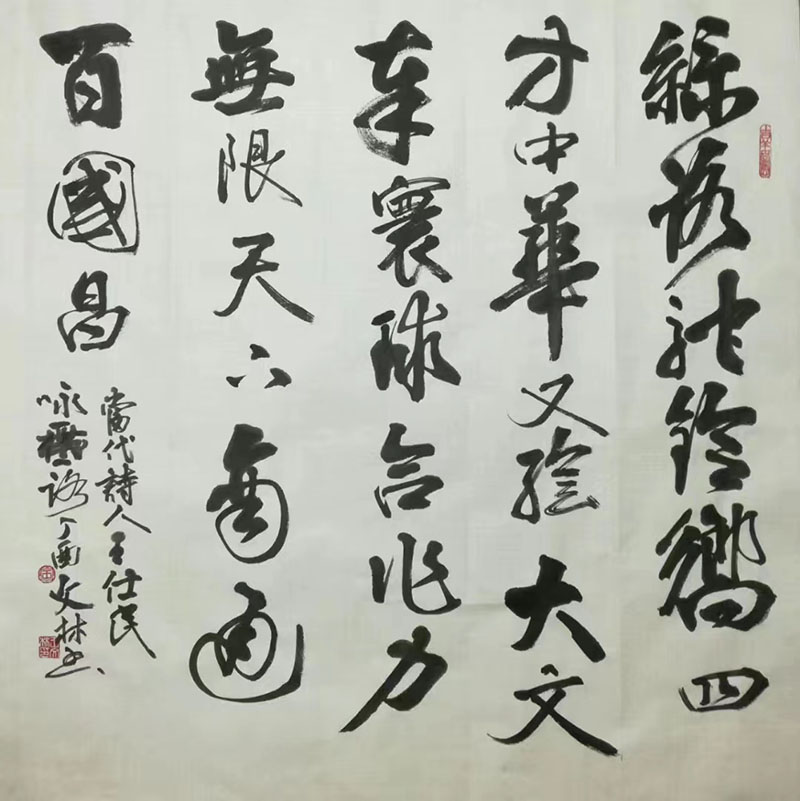 絲路駝鈴響四
方中華又繪大文
章寰球合作力
無限天下商通
百國昌
當代詩人王仕民
咏路丁酉文林書